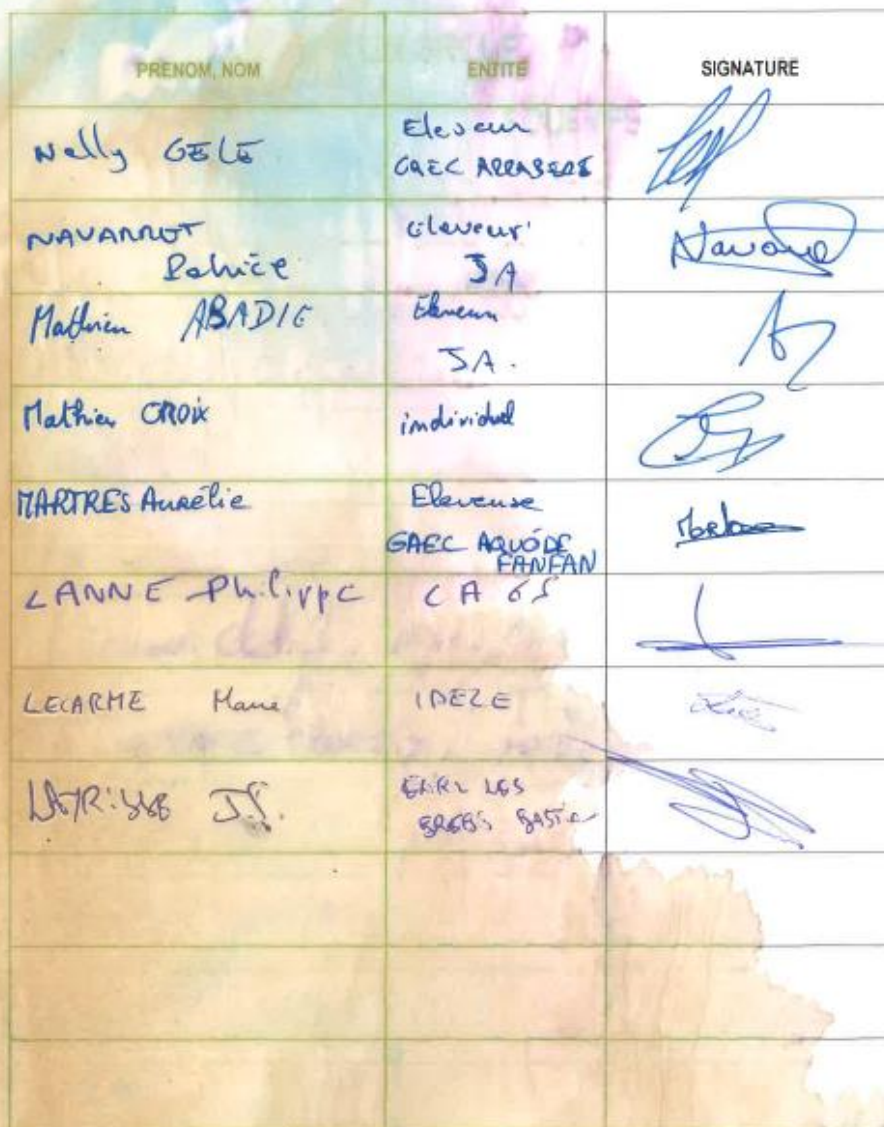 PRENOM, NOM ENTITE SIGNATURE
Nelly GELE Eleveur
GAEC ARRASERS
NAVARRET Eleveur
Patrice JA
Mathieu ABADIE Eleveur
JA.
Mathieu CROIX individuel
MARTRES Aurélie Eleveuse
GAEC AQUÒDE
FANFAN
LANNE Philippe CA 65
LECARME Marie IDELE
J.S. EARL LES